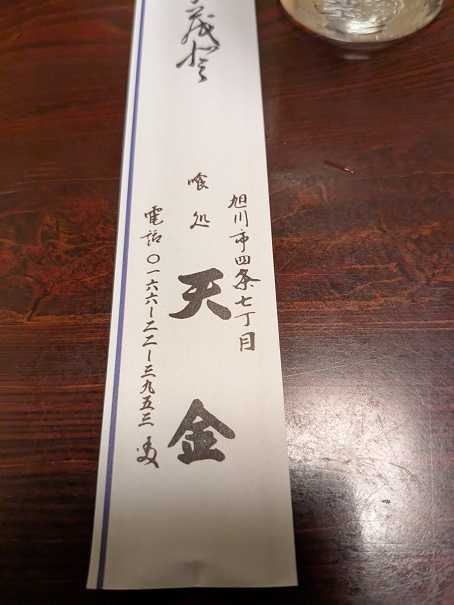 旭川市四条七丁目
喰処
天金
電話〇一六六ー二二ー三九五三